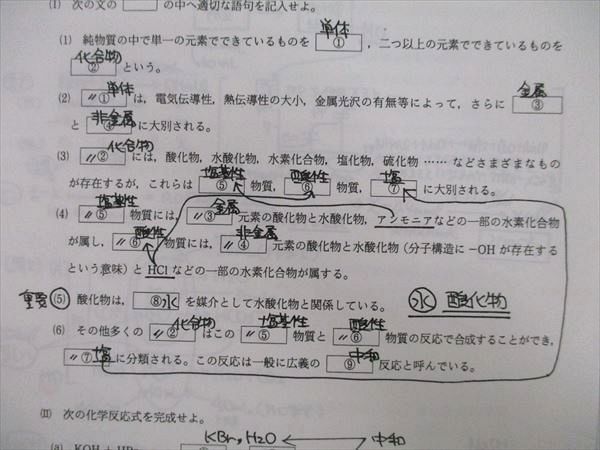 (I) 次の文の □ の中へ適切な語句を記入せよ.
(1) 純物質の中で単一の元素でできているものを 単体 ① , 二つ以上の元素でできているものを
化合物 ② という.
(2) 〃① 単体 は, 電気伝導性, 熱伝導性の大小, 金属光沢の有無等によって, さらに 金属 ③
と 非金属 ④ に大別される.
(3) 〃② 化合物 には, 酸化物, 水酸化物, 水素化合物, 塩化物, 硫化物 …… などさまざまなもの
が存在するが, これらは 塩基性 ⑤ 物質, 酸性 ⑥ 物質, 塩 ⑦ に大別される.
(4) 〃⑤ 塩基性 物質には, 〃③ 金属 元素の酸化物と水酸化物, アンモニアなどの一部の水素化合物
が属し, 〃⑥ 酸性 物質には, 〃④ 非金属 元素の酸化物と水酸化物 (分子構造に −OH が存在する
という意味) と HCl などの一部の水素化合物が属する.
重要 (5) 酸化物は, ⑧ 水 を媒介として水酸化物と関係している. 水 酸化物
(6) その他多くの 〃② 化合物 はこの 〃⑤ 塩基性 物質と 〃⑥ 酸性 物質の反応で合成することができ,
〃⑦ 塩 に分類される. この反応は一般に広義の 中和 ⑨ 反応と呼んでいる.
(II) 次の化学反応式を完成せよ.
KBr, H2O 中和
(a) KOH + HBr